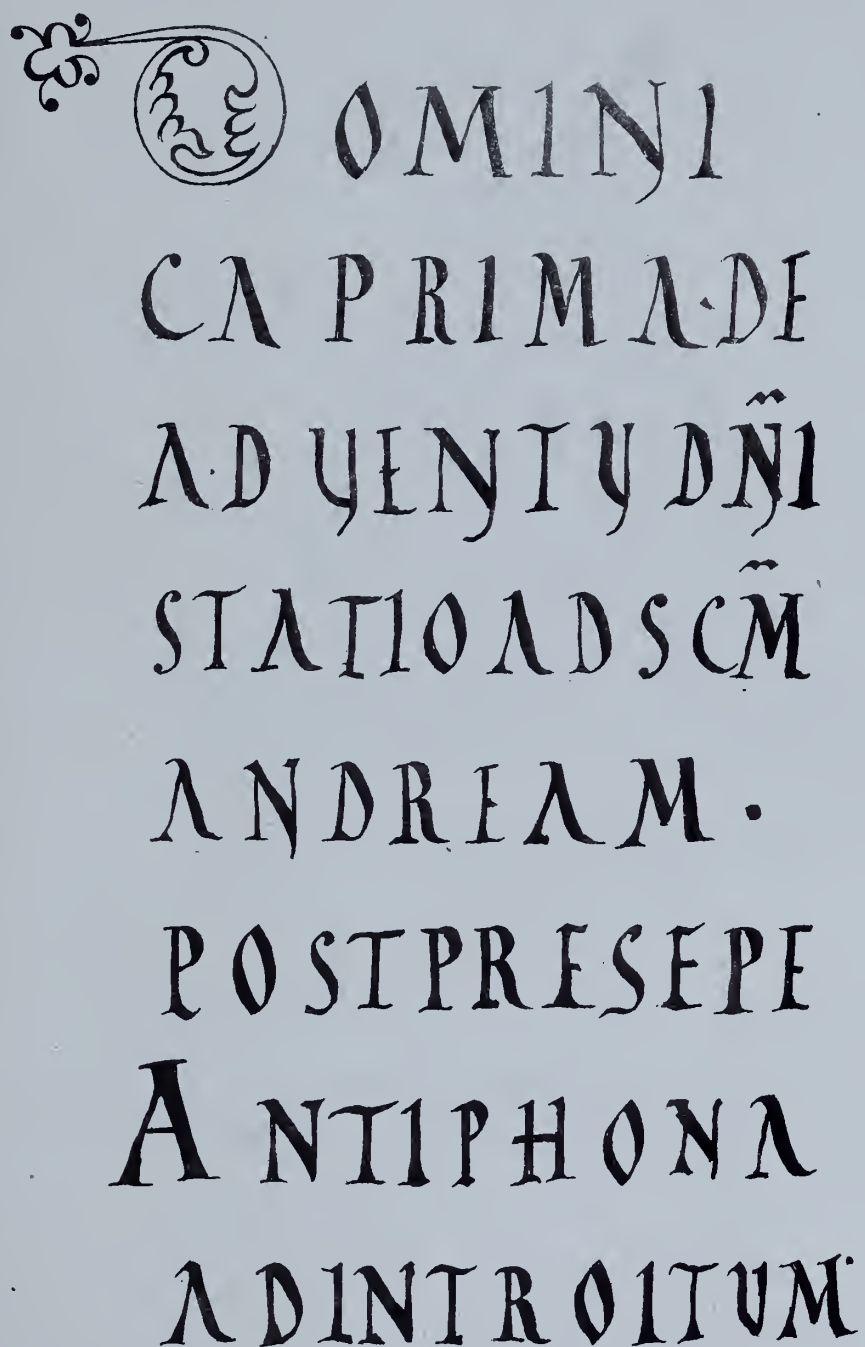 DOMINI
CA PRIMA·DE
A·DUENTU DN̅I
STATIO AD SCM̅
ANDREAM ·
POST PRESEPE
ANTIPHONA
AD INTROITUM·